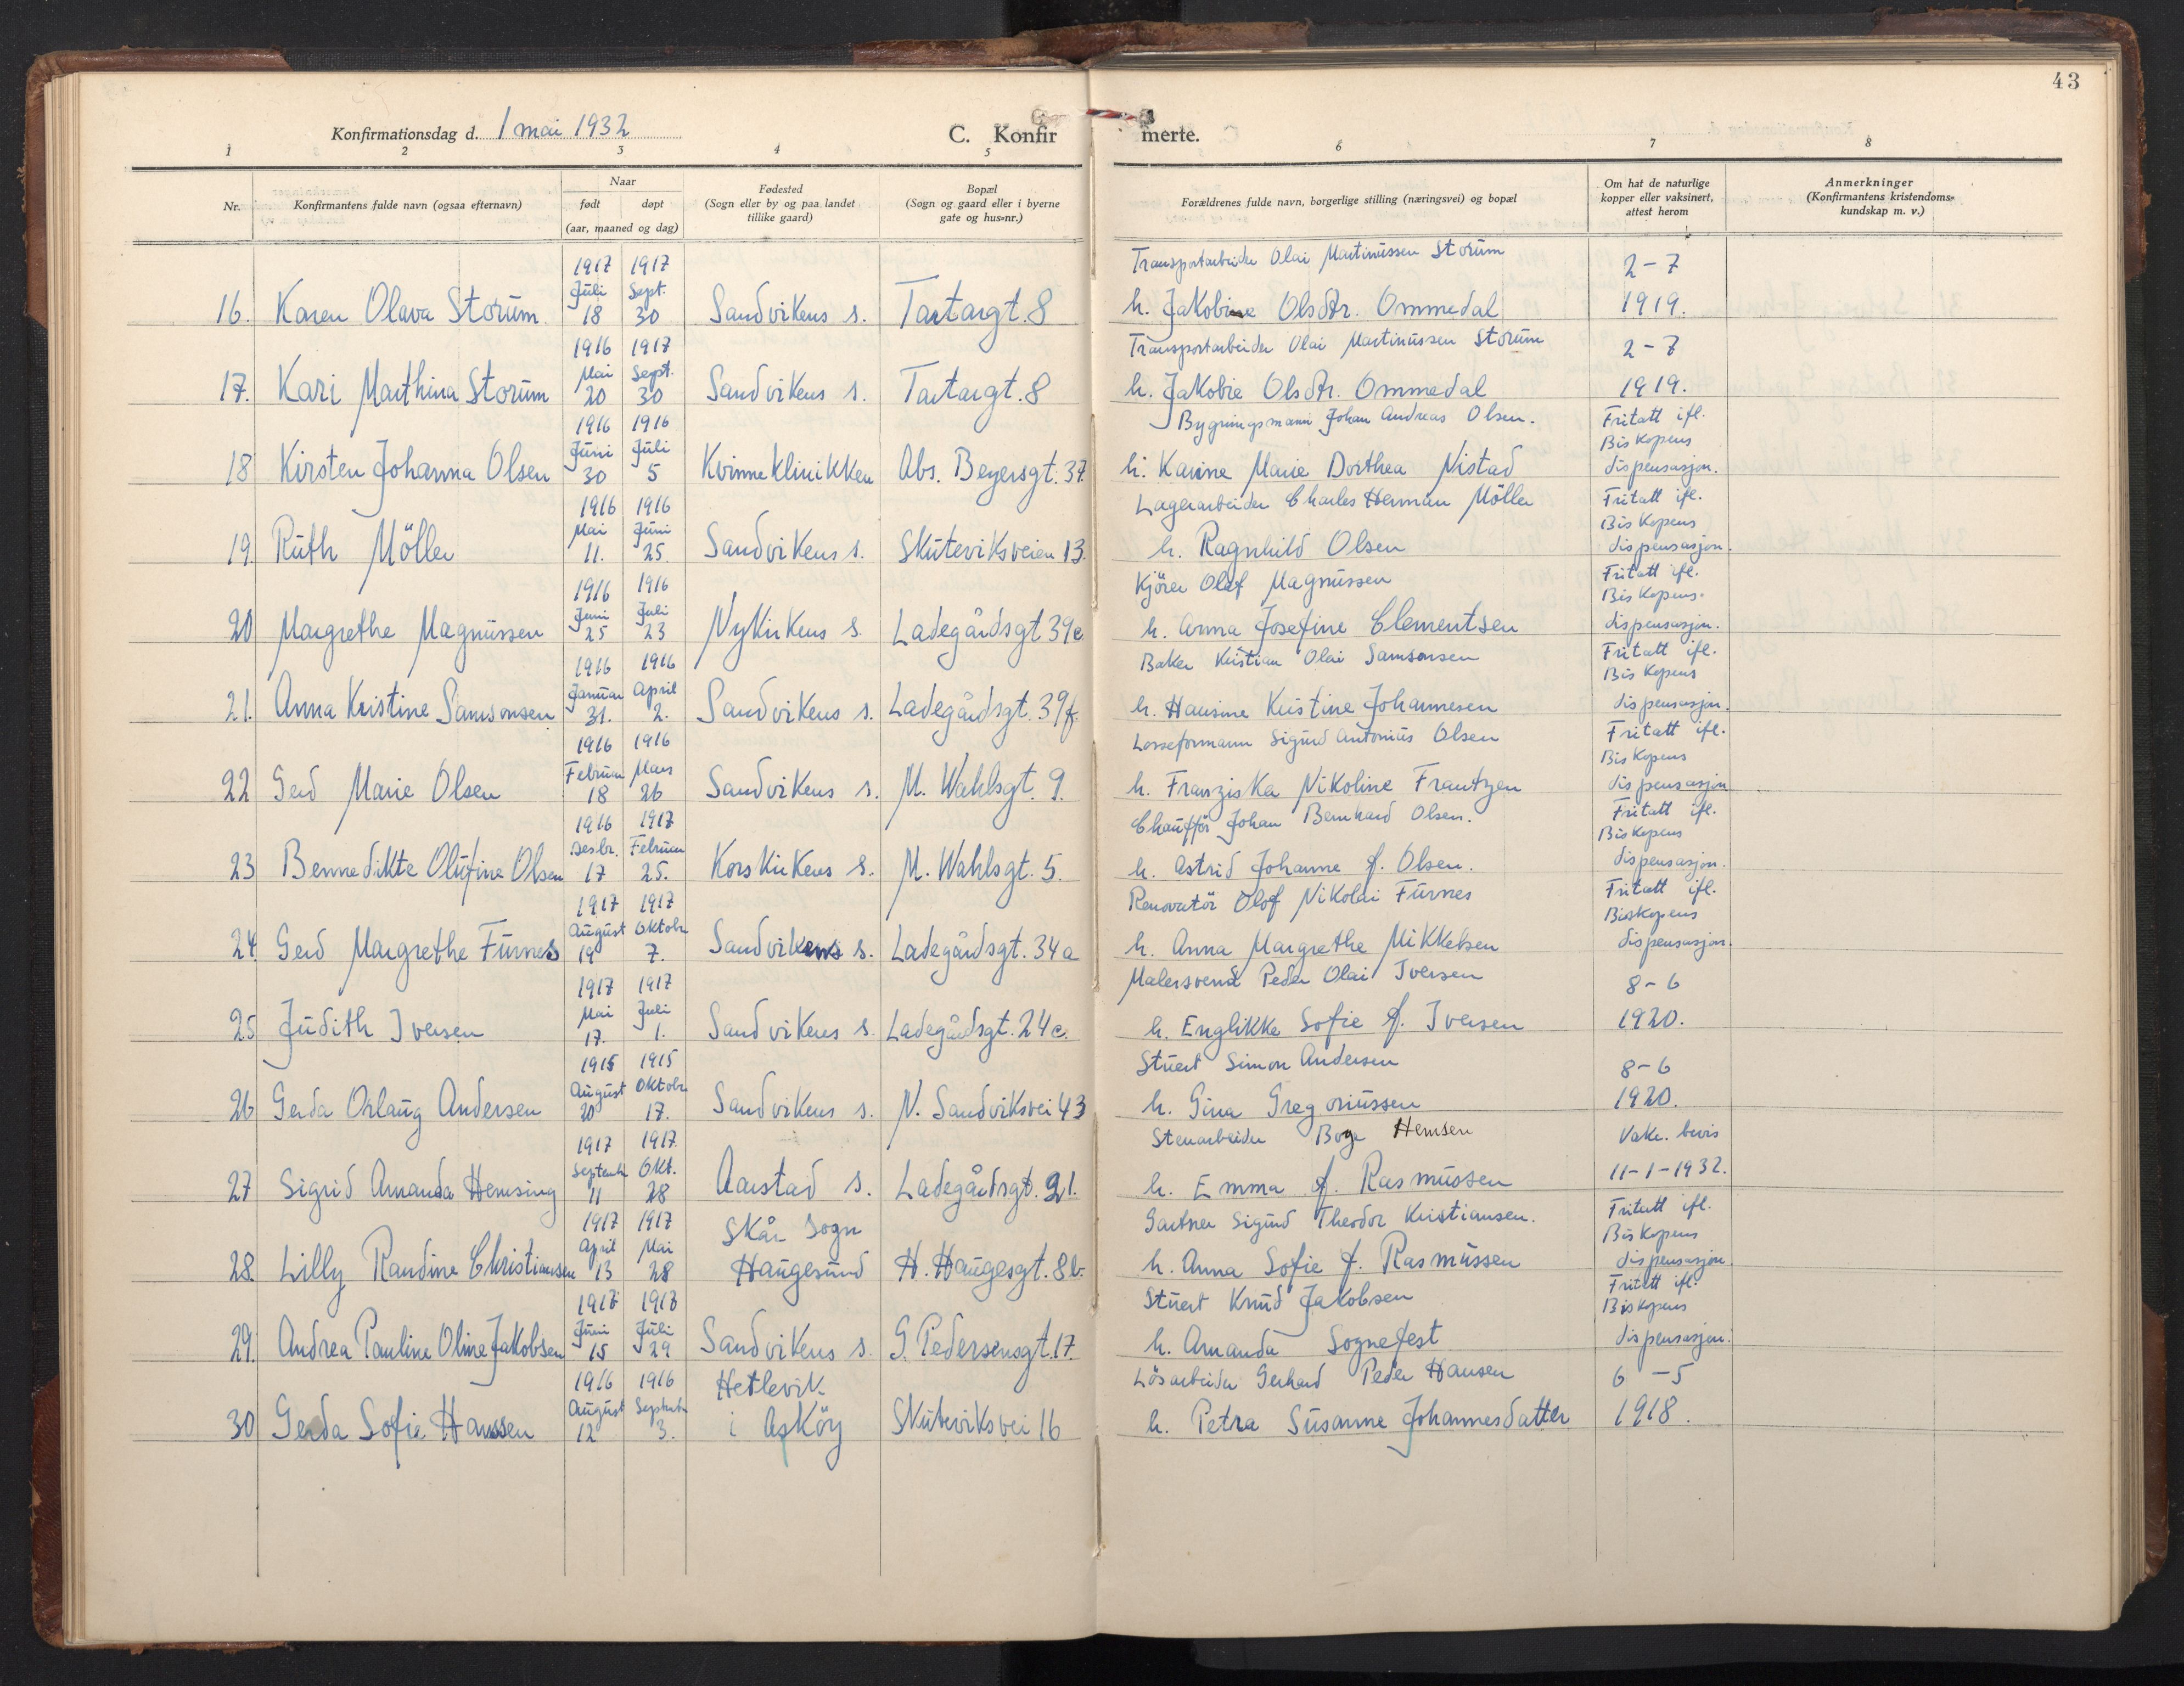 43
Konfirmationsdag d. 1 mai 1932 C. Konfirmerte.
1 2 3 4 5 6 7 8
Nr. Konfirmantens fulde navn (ogsaa efternavn) Naar født døpt (aar, maaned og dag) Fødested (Sogn eller by og paa landet tillike gaard) Bopæl (Sogn og gaard eller i byerne gate og hus-nr.) Forældrenes fulde navn, borgerlige stilling (næringsvei) og bopæl Om hat de naturlige kopper eller vaksinert, attest herom Anmerkninger (Konfirmantens kristendoms-kundskap m. v.)
1917 1917 Transportarbeider Olai Martinussen Storum 2-7
Juli Sept.
16. Karen Olava Storum 18 30 Sandvikens s. Tartargt. 8 h. Jakobine Olsdtr. Ommedal 1919.
1916 1917 Transportarbeider Olai Martinussen Storum 2-7
Mai Sept.
17. Kari Marthina Storum 20 30 Sandvikens s. Tartargt. 8 h. Jakobie Olsdtr. Ommedal 1919.
1916 1916 Bygningsmann Johan Andreas Olsen. Fritatt ifl.
Juni Juli Biskopens
18 Kirsten Johanna Olsen 30 5 Kvinneklinikken Abs. Beyersgt. 37. h. Karine Marie Dorthea Nistad dispensasjon.
1916 1916 Lagerarbeider Charles Herman Möller Fritatt ifl.
Mai Juni Biskopens
19. Ruth Möller 11. 25. Sandvikens s. Skuteviksveien 13. h. Ragnhild Olsen dispensasjon.
1916 1916 Kjörer Olaf Magnussen Fritatt ifl.
Juni Juli Biskopens.
20 Margrethe Magnussen 25 23 Nykirkens s. Ladegårdsgt 39e h. Anna Josefine Clementsen dispensasjon.
1916 1916 Baker Kristian Olai Samsonsen Fritatt ifl.
Januar April Biskopens
21. Anna Kristine Samsonsen 31. 2. Sandvikens s. Ladegårdsgt. 39f. h. Hansine Kristine Johannesen dispensasjon.
1916 1916 Losseformann Sigurd Antonius Olsen Fritatt ifl.
Februar Mars Biskopens
22 Gerd Marie Olsen 18 26 Sandvikens s. M. Wahlsgt. 9. h. Franziska Nikoline Frantzen dispensasjon
1916 1917 Chauffør Johan Bernhard Olsen. Fritatt ifl.
Desbr. Februar Biskopens
23 Bennedikte Olufine Olsen 17 25. Korskirkens s. M. Wahlsgt. 5. h. Astrid Johanne f. Olsen. dispensasjon.
1917 1917 Renovatör Olof Nikolai Furnes Fritatt ifl.
August Oktobr. Biskopens
24. Gerd Margrethe Furnes 19 7. Sandvikens s. Ladegårdsgt. 34a h. Anna Margrethe Mikkelsen dispensasjon.
1917 1917 Malersvend Peder Olai Iversen 8-6
Mai Juli
25 Judith Iversen 17. 1. Sandvikens s. Ladegårdsgt. 24c. h. Englikke Sofie f. Iversen 1920.
1915 1915 Stuert Simon Andersen 8-6
August Oktobr.
26 Gerda Oslaug Andersen 20 17. Sandvikens s. N. Sandviksvei 43 h. Gina Gregoriussen 1920.
1917 1917. Stenarbeider Boye Hemsen Vaks. bevis
Septemb. Okt.
27 Sigrid Amanda Hemsing 11 28 Aarstad s. Ladegårdsgt. 21. h. Emma f. Rasmussen 11-1-1932.
1917 1917 Skår Sogn Gartner Sigurd Theodor Kristiansen. Fritatt ifl.
April Mai Biskopens
28. Lilly Randine Christiansen 13 28 Haugesund H. Haugesgt. 8b. h. Anna Sofie f. Rasmussen dispensasjon
1917 1917 Stuert Knud Jakobsen Fritatt ifl.
Juni Juli Biskopens
29. Andrea Pauline Oline Jakobsen 15 29 Sandvikens s. G. Pedersensgt. 17. h. Amanda Sognefest dispensasjon.
1916 1916 Hetlevik Lösarbeider Gerhard Peder Hansen 6-5
August Septemb.
30 Gerda Sofie Hanssen 12 3. i Asköy Skuteviksvei 16 h. Petra Susanne Johannesdatter 1918.